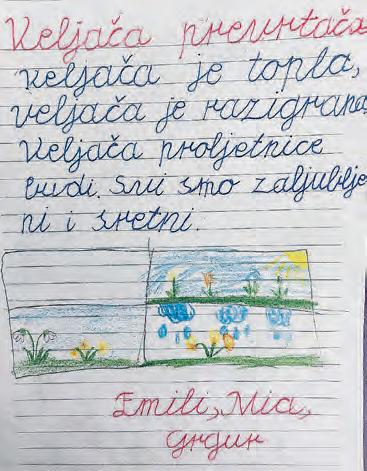 Veljača prevrtača
veljača je topla,
veljača je razigrana,
Veljača proljetnice
budi. Svi smo zaljublje
ni i sretni.
Emili, Mia,
Grgur